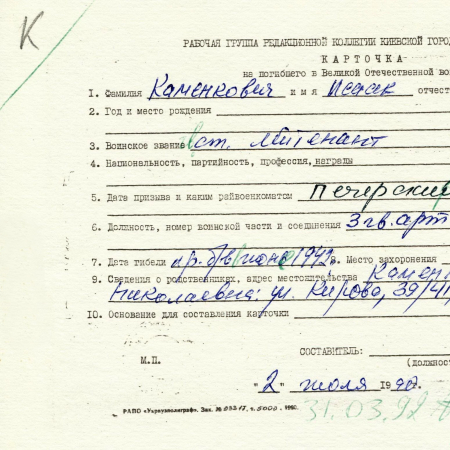 К
РАБОЧАЯ ГРУППА РЕДАКЦИОННОЙ КОЛЛЕГИИ КИЕВСКОЙ ГОРО
КАРТОЧКА
на погибшего в Великой Отечественной во
1. Фамилия Каменкович имя Исаак отчест
2. Год и место рождения
3. Воинское звание ст. лейтенант
4. Национальность, партийность, профессия, награды
5. Дата призыва и каким райвоенкоматом Печерский
6. Должность, номер воинской части и соединения 3 гв. арт
7. Дата гибели пр. б/в июне 1942 8. Место захоронения
9. Сведения о родственниках, адрес местожительства Камен
Николаевна: ул. Кирова, 39/41,
10. Основание для составления карточки
СОСТАВИТЕЛЬ:
М.П. (должнос
"2" июля 1990.
РАПО «Укрвузполиграф». Зак. 5000. 1990.
31.03.92